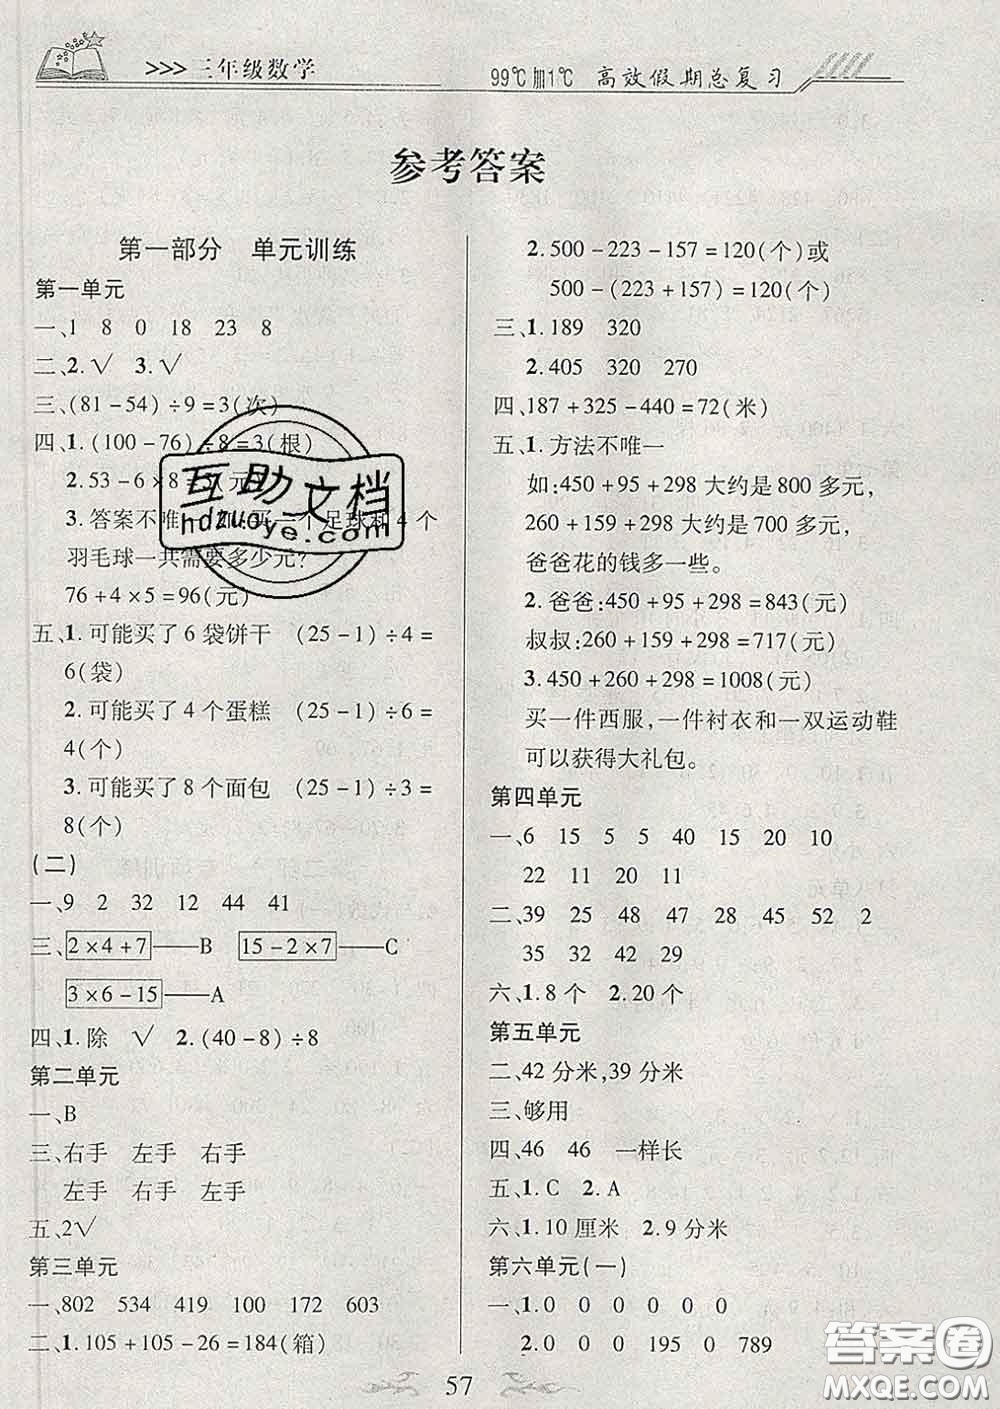 >>> 三年级数学
99℃加1℃ 高效假期总复习
参考答案
第一部分 单元训练
第一单元
一、1 8 0 18 23 8
二、2.√ 3.√
三、(81-54)÷9=3(次)
四、1.(100-76)÷8=3(根)
2.53-6×8=5(元)
3.答案不唯一 如:买一个足球和4个
羽毛球一共需要多少元?
76+4×5=96(元)
五、1.可能买了6袋饼干 (25-1)÷4=
6(袋)
2.可能买了4个蛋糕 (25-1)÷6=
4(个)
3.可能买了8个面包 (25-1)÷3=
8(个)
(二)
一、9 2 32 12 44 41
三、2×4+7——B 15-2×7——C
3×6-15——A
四、1.除 √ 2.(40-8)÷8
第二单元
一、B
三、右手 左手 右手
左手 右手 左手
五、2√
第三单元
一、802 534 419 100 172 603
二、1.105+105-26=184(箱)
2.500-223-157=120(个)或
500-(223+157)=120(个)
三、1.189 320
2.405 320 270
四、187+325-440=72(米)
五、1.方法不唯一
如:450+95+298大约是800多元,
260+159+298大约是700多元,
爸爸花的钱多一些。
2.爸爸:450+95+298=843(元)
叔叔:260+159+298=717(元)
3.450+260+298=1008(元)
买一件西服,一件衬衣和一双运动鞋
可以获得大礼包。
第四单元
一、6 15 5 5 40 15 20 10
22 11 20 21
二、39 25 48 47 28 45 52 2
35 32 42 29
六、1.8个 2.20个
第五单元
二、42分米,39分米
三、够用
四、46 46 一样长
五、1.C 2.A
六、1.10厘米 2.9分米
第六单元(一)
一、1.0 0 0 0 0 0
2.0 0 0 195 0 789
57
互助文档
hdzuoye.com
答案圈
MXQE.COM